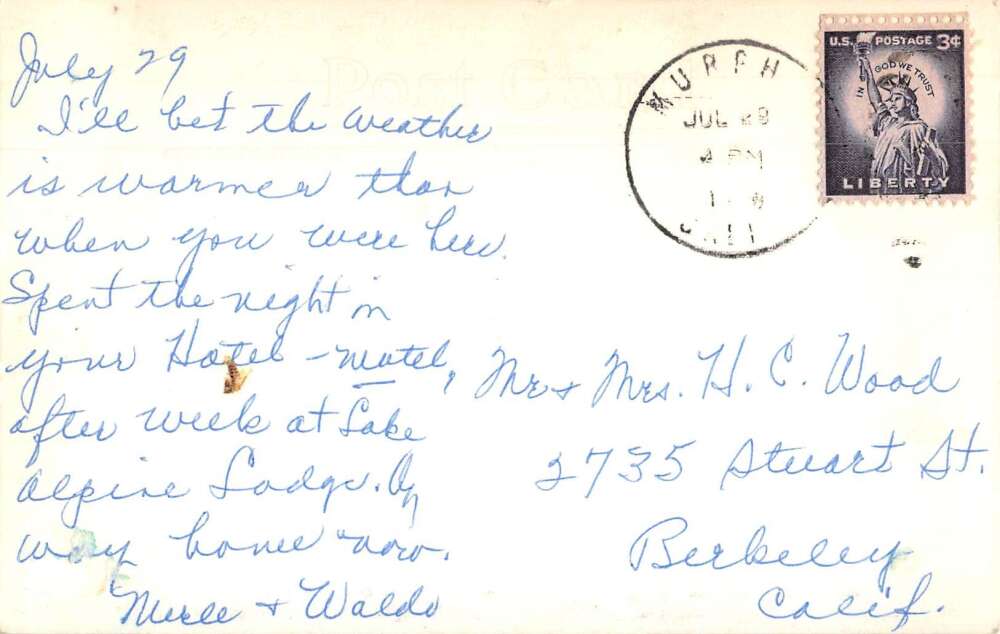 July 29
I'll bet the weather
is warmer than
when you were here.
Spent the night in
your Hotel - motel,
after week at Lake
Alpine Lodge. On
way home now.
Merle + Waldo
Post Card
MURPH
JUL 29
4 PM
CALI
U.S. POSTAGE 3¢
IN GOD WE TRUST
LIBERTY
Mr + Mrs. H. C. Wood
2735 Stuart St.
Berkeley
Calif.